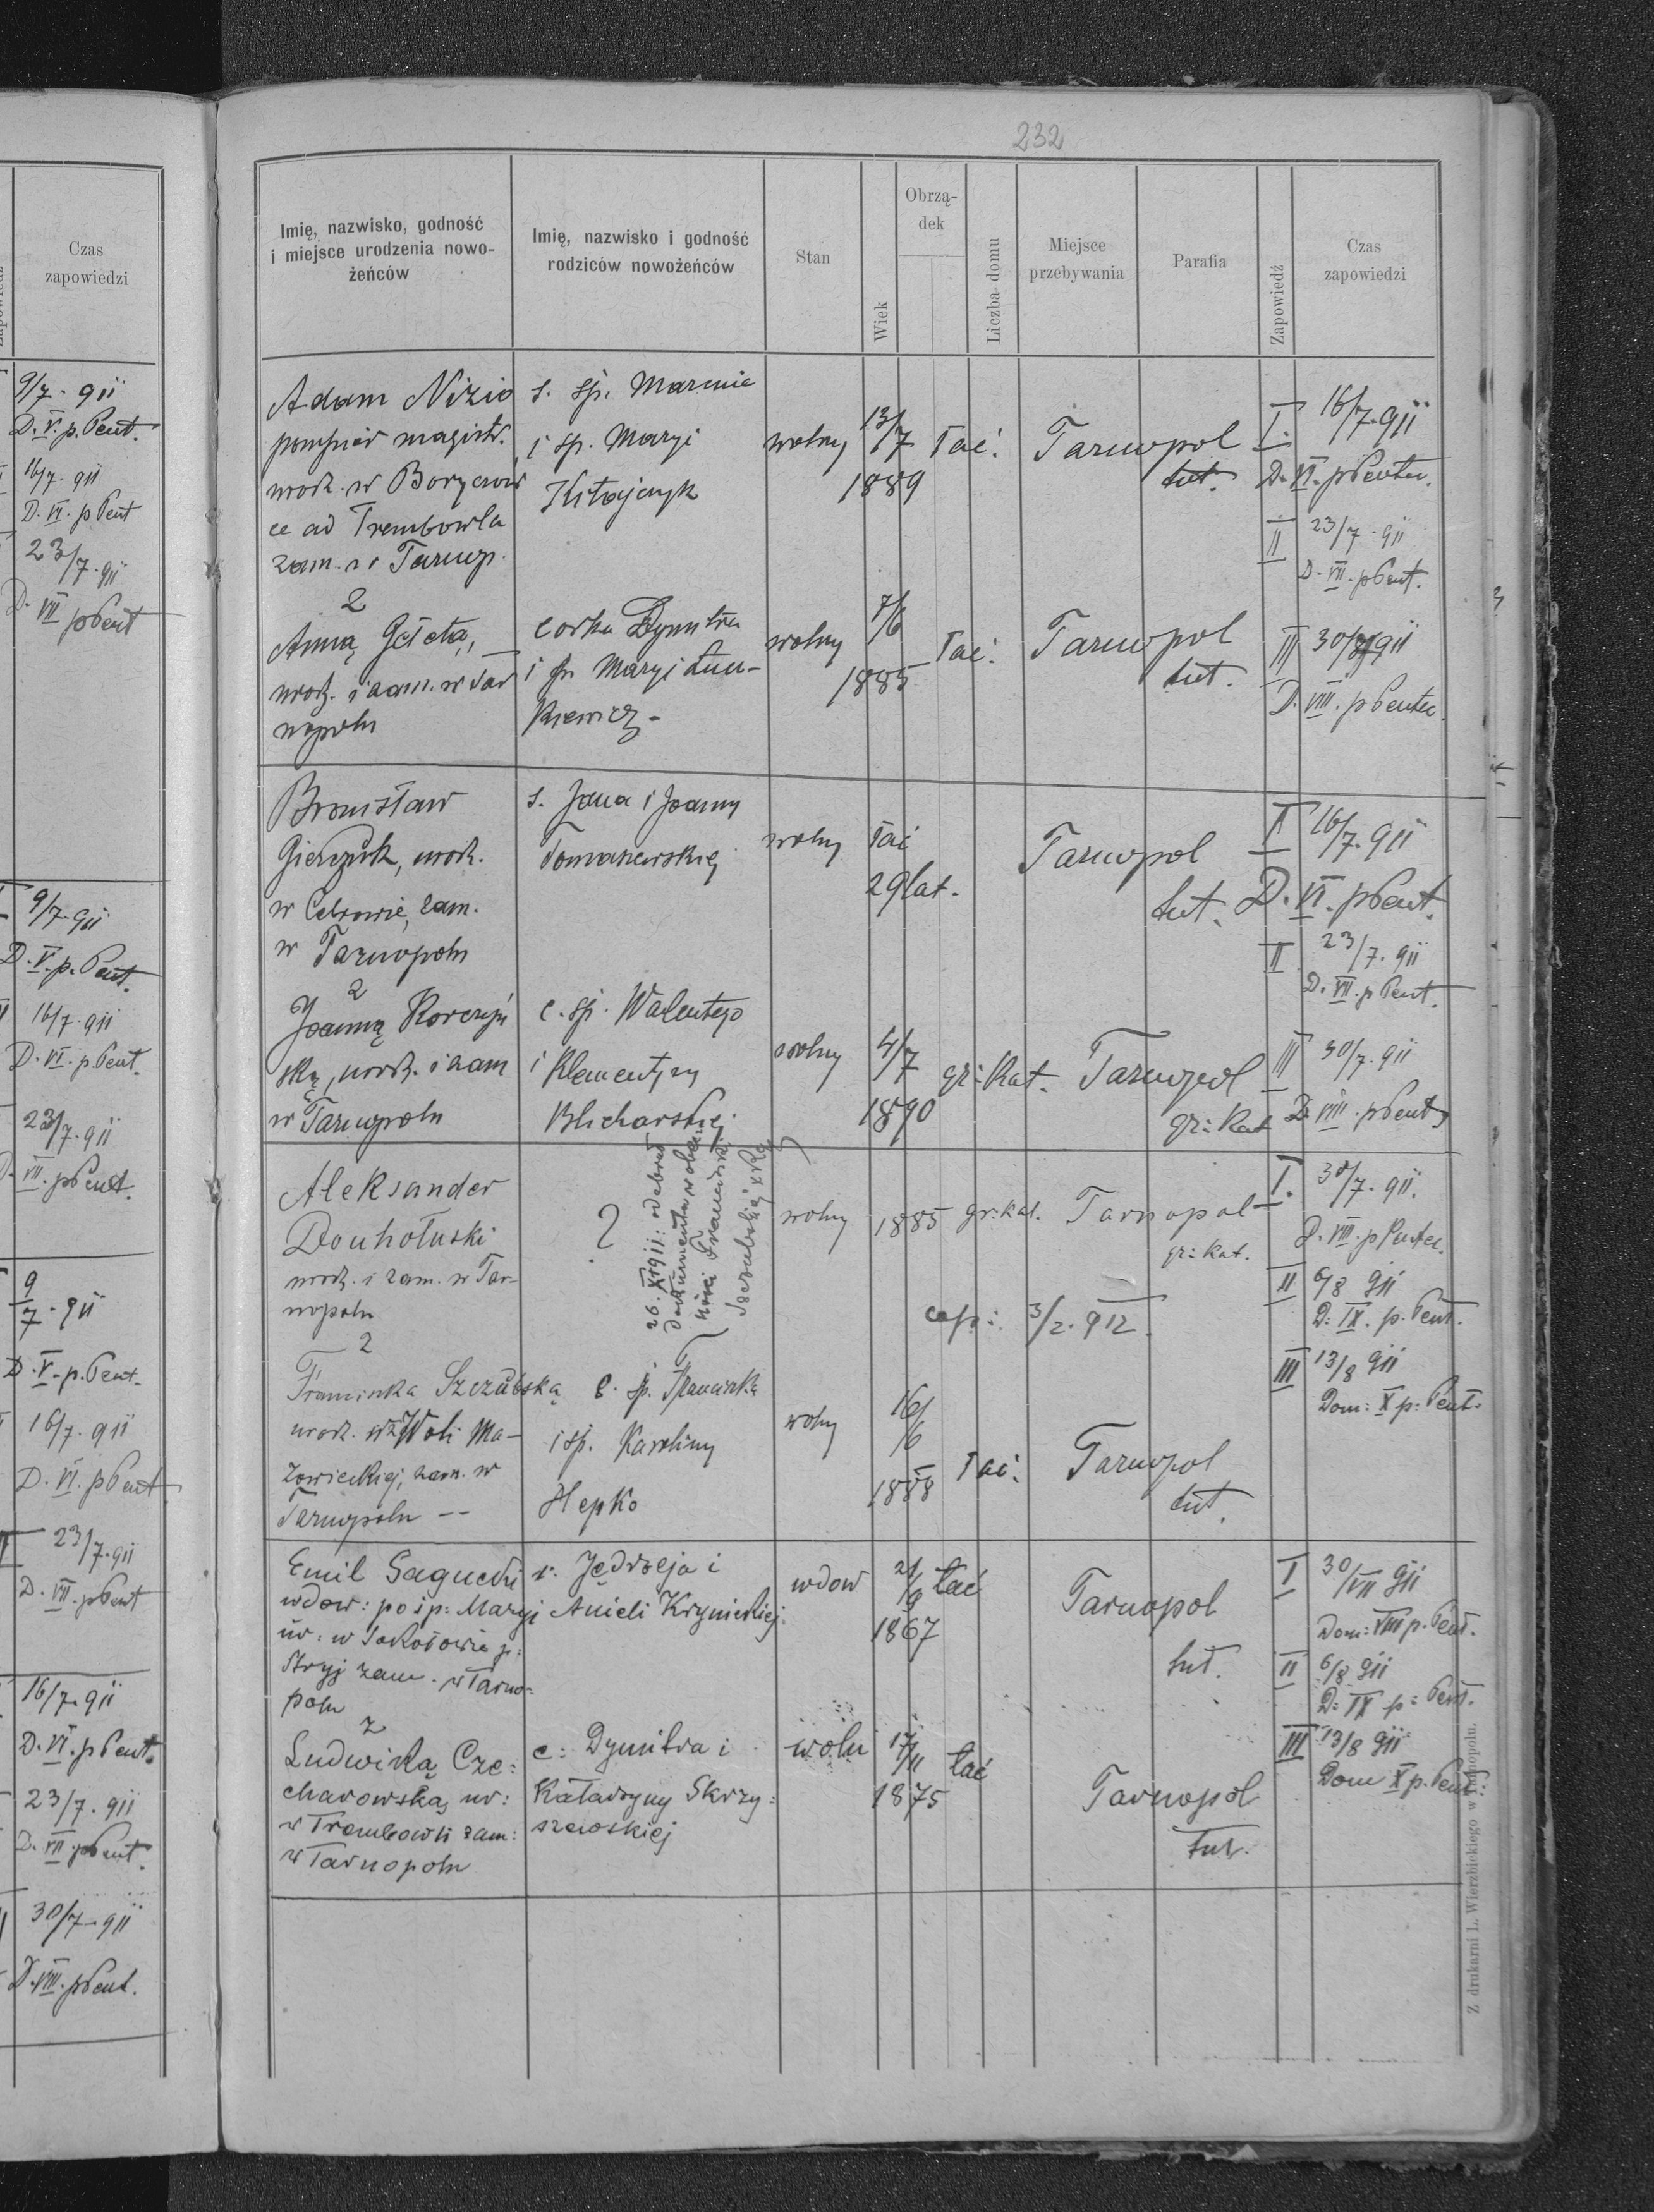 Czas
zapowiedzi
9/7 · 911
D. V. p. Pent.
16/7 · 911
D. VI. p Pent
23/7 · 911
D. VII p Pent
9/7 · 911
D. V. p. Pent.
16/7 · 911
D. VI. p Pent.
23/7 · 911
VII. p Pent.
9/7 · 911
D. V. p. Pent.
16/7 · 911
D. VI. p Pent
23/7 · 911
D. VII. p Pent
16/7 · 911
D. VI. p Pent.
23/7 · 911
D. VII. p Pent.
30/7 · 911
D. VIII. p Pent.
232
Imię, nazwisko, godność
i miejsce urodzenia nowo-
żeńców
Imię, nazwisko i godność
rodziców nowożeńców
Stan
Wiek
Obrzą-
dek
Liczba domu
Miejsce
przebywania
Parafia
Zapowiedź
Czas
zapowiedzi
Adam Nizio
magistr.
urodz. w Borycow
ce ad Trembowla
zam. w Tarnop.
s. śp.
i śp. Maryi
Kitajczyk
wolny
13/7
1889
łać.
Tarnopol
tut.
I. 16/7 · 911
D. VI. p Pentec.
II 23/7 · 911
D. VII. p Pent.
z
Anną
urodz. i zam. w Tar
nopolu
córka Dymitra
i śp. Maryi Łuc-
kiewicz -
wolny
7/6
1885
łać.
Tarnopol
tut.
III 30/7 911
D. VIII. p Pentec.
Bronisław
urodz.
w Cebrowie, zam.
w Tarnopolu
s. Jana i Joanny
Tomaszewskiej
wolny
łać
29 lat.
Tarnopol
tut.
I 16/7 · 911
D. VI. p Pent.
II 23/7 · 911
D. VII. p Pent.
z
Joanną Korczyń
ską, urodz. i zam
w Tarnopolu
c. śp. Walentego
i Klementyny
Blicharskiej
wolny
4/7
1890
gr: kat.
Tarnopol
gr: kat
III 30/7 · 911
D. VIII. p Pent.
Aleksander
Douhołuski
urodz. i zam. w Tar-
nopolu
?
26. XI 911: odebrał
dokumenta
Franciszki
Szczubskiej
wolny
1885
gr: kat.
Tarnopol
gr: kat.
I. 30/7 · 911.
D. VIII. p Pentec.
II 6/8 911
D: IX. p. Pent.
3/2 · 912.
III 13/8 911
Dom: X p: Pent:
z
Franciszka Szczubską
urodz. w Woli Ma-
zowieckiej, zam. w
Tarnopolu --
c. śp. Franciszka
i śp. Karoliny
Hepko
wolny
16/6
1888
łać.
Tarnopol
tut.
Emil
wdow: po śp: Maryi
ur: w Sokołowie p:
Stryj zam. w Tarno-
polu
s. Jędrzeja i
Anieli Krynickiej.
wdow
21/9
1867
łać
Tarnopol
tut.
I 30/VII 911
Dom: VIII p. Pent.
II 6/8 911
D: IX p: Pent.
z
Ludwiką Cze:
charowską ur:
w Trembowli zam:
w Tarnopolu
c: Dymitra i
Katarzyny Skrzy:
szewskiej
woln
17/11
1875
łać
Tarnopol
tut.
III 13/8 911
Dom X p. Pent:
Z drukarni L. Wierzbickiego w Tarnopolu.